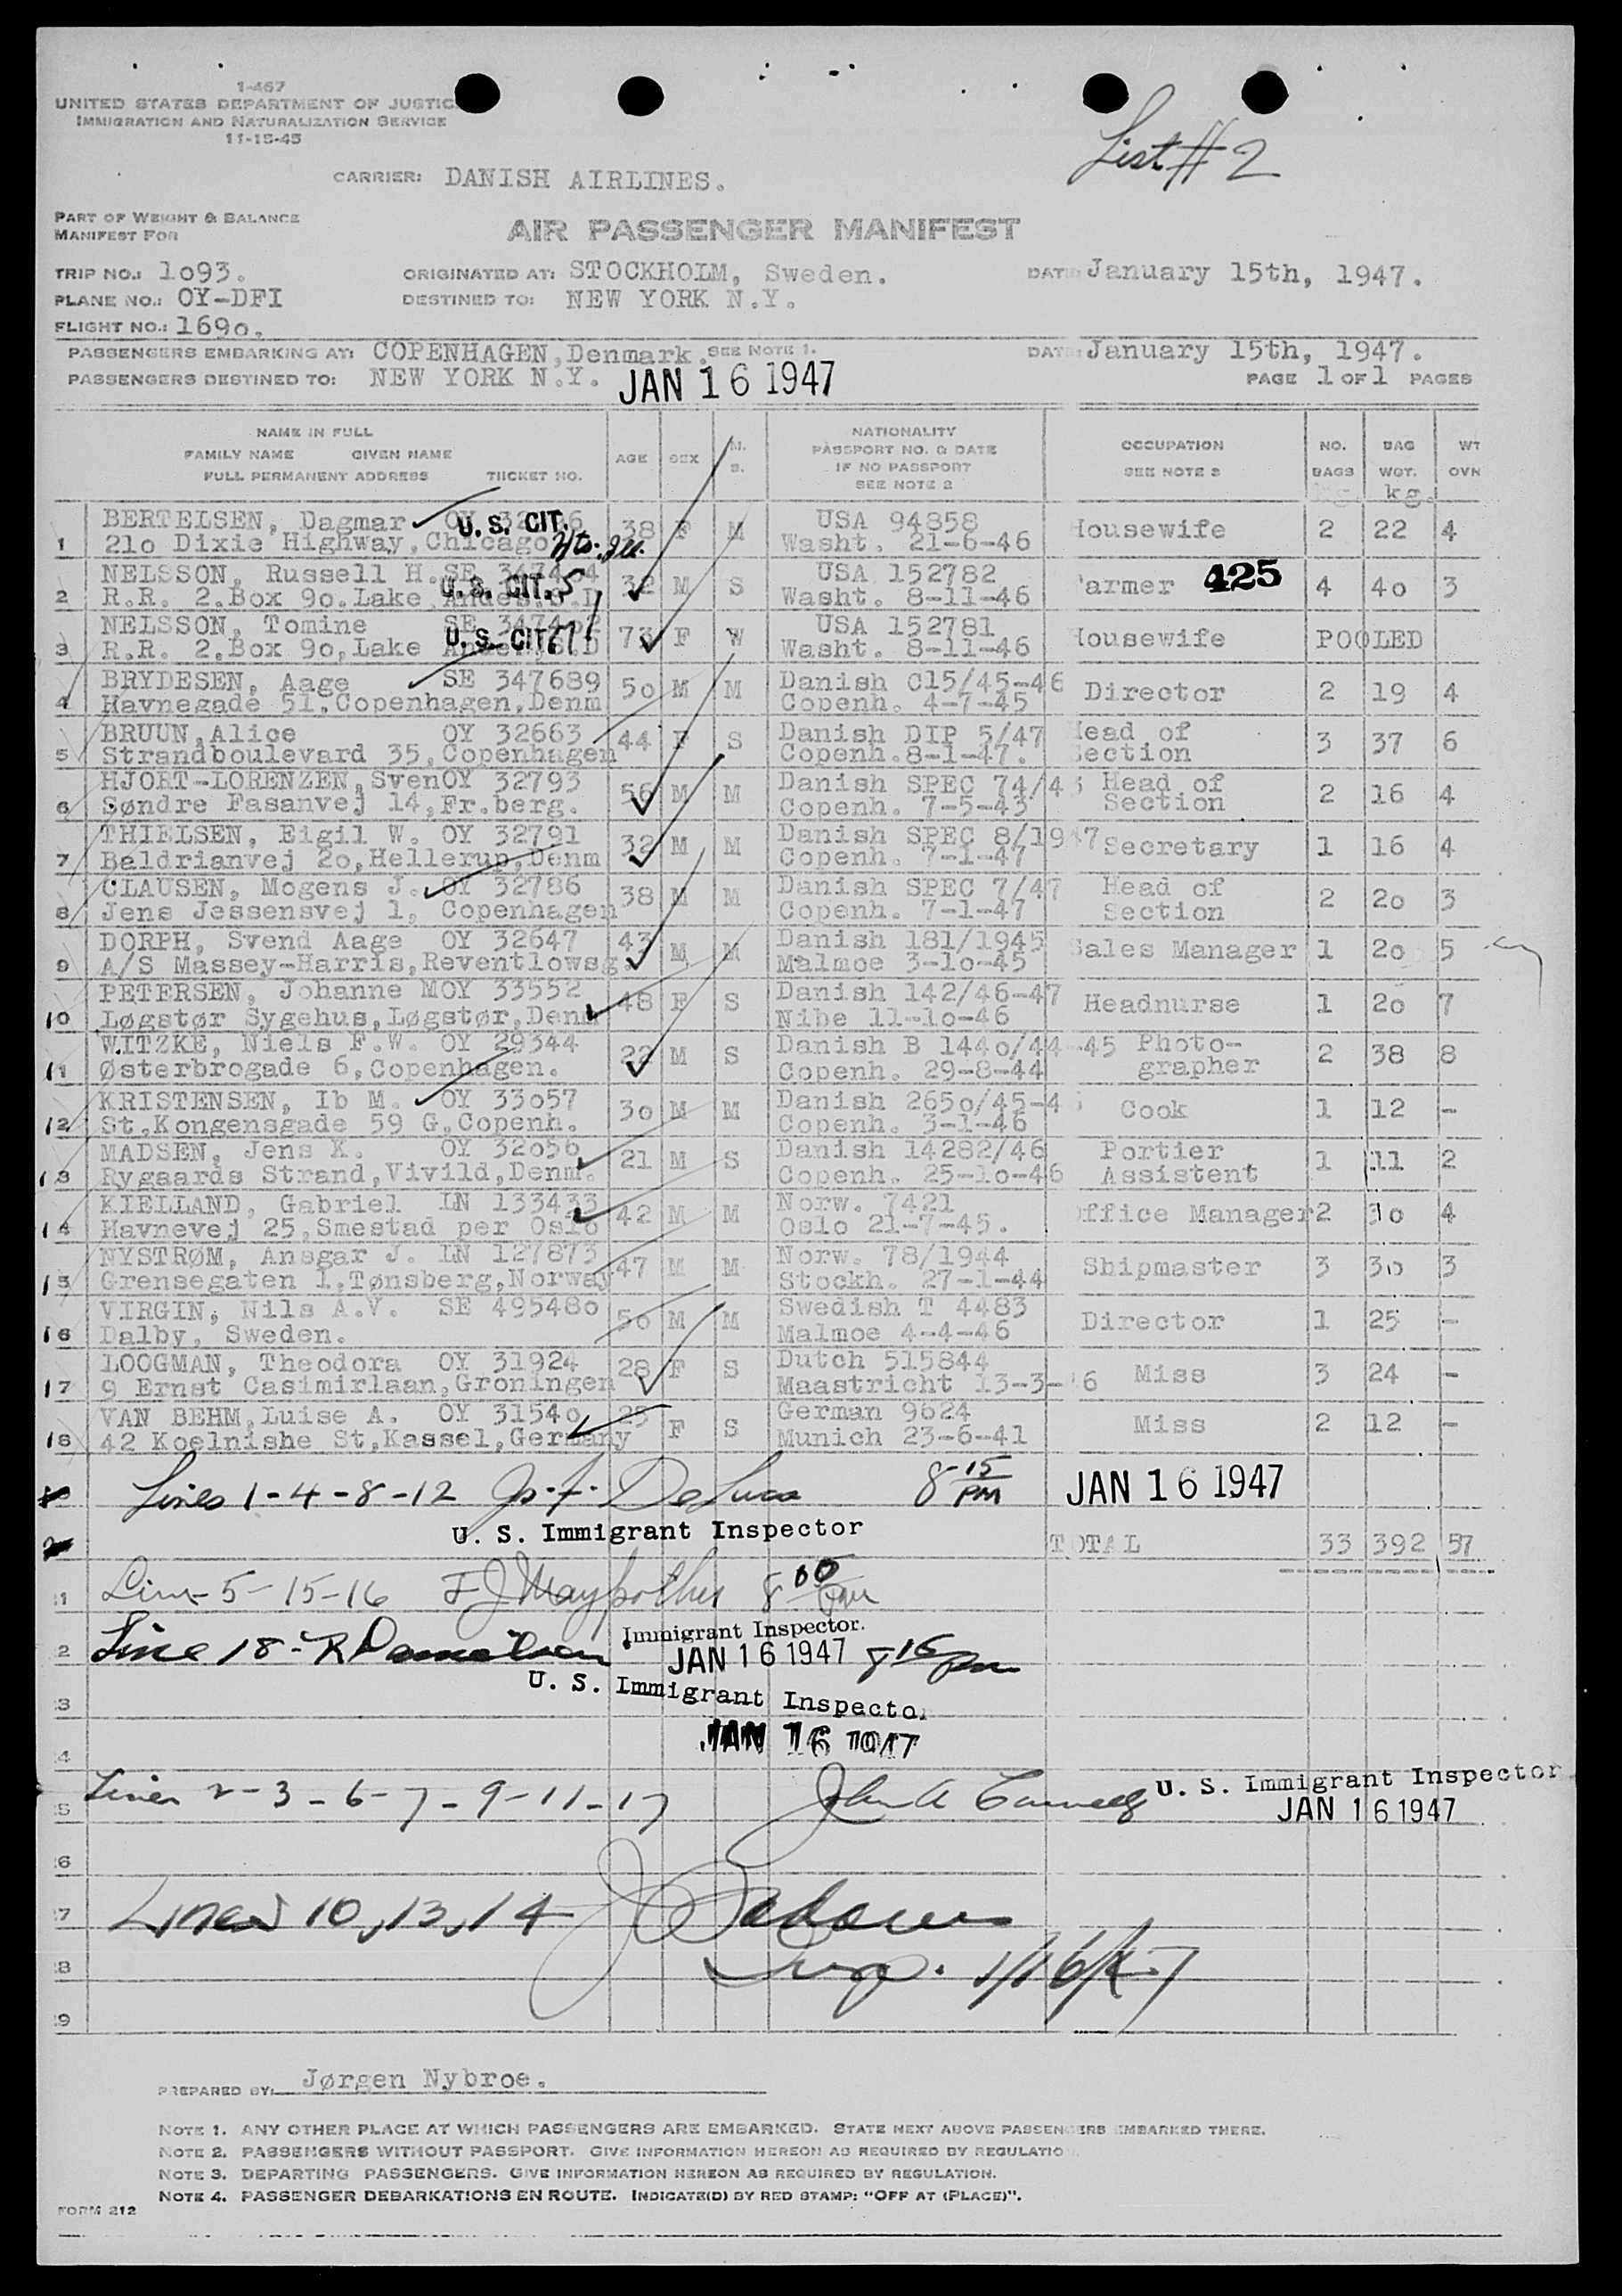 1-467
UNITED STATES DEPARTMENT OF JUSTIC
IMMIGRATION AND NATURALIZATION SERVICE
11-15-45
List # 2
CARRIER: DANISH AIRLINES.
PART OF WEIGHT & BALANCE
MANIFEST FOR
AIR PASSENGER MANIFEST
TRIP NO.: 1o93. ORIGINATED AT: STOCKHOLM, Sweden. DATE January 15th, 1947.
PLANE NO.: OY-DFI DESTINED TO: NEW YORK N.Y.
FLIGHT NO.: 169o.
PASSENGERS EMBARKING AT: COPENHAGEN, Denmark. SEE NOTE 1. DATE: January 15th, 1947.
PASSENGERS DESTINED TO: NEW YORK N.Y. JAN 16 1947 PAGE 1 OF 1 PAGES
NAME IN FULL
FAMILY NAME GIVEN NAME
FULL PERMANENT ADDRESS TICKET NO.
AGE SEX M. S.
NATIONALITY
PASSPORT NO. & DATE
IF NO PASSPORT
SEE NOTE 2
OCCUPATION
SEE NOTE 3
NO. BAGS
BAG WGT. kg.
WT OVN
BERTELSEN, Dagmar OY U.S. CIT. 38 F M USA 94858 Housewife 2 22 4
1 21o Dixie Highway, Chicago Hts. Ill. Washt. 21-6-46
NELSSON, Russell H. SE U.S. CIT. 32 M S USA 152782 Farmer 425 4 4o 3
2 R.R. 2.Box 9o.Lake Andes.S.D Washt. 8-11-46
NELSSON, Tomine SE U.S. CIT. 73 F W USA 152781 Housewife POOLED
3 R.R. 2.Box 9o,Lake Andes,S.D Washt. 8-11-46
BRYDESEN, Aage SE 347689 5o M M Danish C15/45-46 Director 2 19 4
4 Havnegade 51.Copenhagen,Denm Copenh. 4-7-45
BRUUN,Alice OY 32663 44 F S Danish DIP 5/47 Head of 3 37 6
5 Strandboulevard 35, Copenhagen Copenh.8-1-47. Section
HJORT-LORENZEN,Sven OY 32793 56 M M Danish SPEC 74/43 Head of 2 16 4
6 Søndre Fasanvej 14,Fr.berg. Copenh. 7-5-43 Section
THIELSEN, Eigil W. OY 32791 32 M M Danish SPEC 8/1947 Secretary 1 16 4
7 Baldrianvej 2o,Hellerup,Denm Copenh. 7-1-47
CLAUSEN, Mogens J. OY 32786 38 M M Danish SPEC 7/47 Head of 2 2o 3
8 Jens Jessensvej 1, Copenhagen Copenh. 7-1-47 Section
DORPH, Svend Aage OY 32647 43 M M Danish 181/1945 Sales Manager 1 2o 5
9 A/S Massey-Harris,Reventlowsg. Malmoe 3-1o-45
PETERSEN, Johanne M OY 33552 48 F S Danish 142/46-47 Headnurse 1 2o 7
10 Løgstør Sygehus,Løgstør,Denm Nibe 11-1o-46
WITZKE, Niels F.W. OY 29344 22 M S Danish B 144o/44-45 Photo- 2 38 8
11 Østerbrogade 6,Copenhagen. Copenh. 29-8-44 grapher
KRISTENSEN, Ib M. OY 33o57 3o M M Danish 265o/45-46 Cook 1 12 -
12 St.Kongensgade 59 G,Copenh. Copenh. 3-1-46
MADSEN, Jens K. OY 32o56 21 M S Danish 14282/46 Portier 1 11 2
13 Rygaards Strand,Vivild,Denm. Copenh. 25-1o-46 Assistent
KIELLAND, Gabriel IN 133433 42 M M Norw. 7421 Office Manager 2 3o 4
14 Havnevej 25,Smestad per Oslo Oslo 21-7-45.
NYSTRØM, Ansgar J. IN 127873 47 M M Norw. 78/1944 Shipmaster 3 3o 3
15 Grensegaten 1,Tønsberg,Norway Stockh. 27-1-44
VIRGIN, Nils A.V. SE 49548o 5o M M Swedish T 4483 Director 1 25 -
16 Dalby, Sweden. Malmoe 4-4-46
LOOGMAN, Theodora OY 31924 28 F S Dutch 515844 Miss 3 24 -
17 9 Ernst Casimirlaan,Groningen Maastricht 13-3-46
VAN BEHM,Luise A. OY 3154o 25 F S German 9624 Miss 2 12 -
18 42 Koelnishe St,Kassel,Germany Munich 23-6-41
Lines 1-4-8-12 Jos. F. DeLuca 8 15 PM JAN 16 1947
U. S. Immigrant Inspector
TOTAL 33 392 57
Line 5-15-16 8 00 pm
Immigrant Inspector.
Line 18- JAN 16 1947 8 15 pm
U. S. Immigrant Inspector
JAN 16 1947
Lines 2-3-6-7-9-11-17 John A U. S. Immigrant Inspector
JAN 16 1947
Lines 10, 13, 14
Insp. 1/16/47
PREPARED BY: Jørgen Nybroe.
NOTE 1. ANY OTHER PLACE AT WHICH PASSENGERS ARE EMBARKED. STATE NEXT ABOVE PASSENGERS EMBARKED THERE.
NOTE 2. PASSENGERS WITHOUT PASSPORT. GIVE INFORMATION HEREON AS REQUIRED BY REGULATIO
NOTE 3. DEPARTING PASSENGERS. GIVE INFORMATION HEREON AS REQUIRED BY REGULATION.
NOTE 4. PASSENGER DEBARKATIONS EN ROUTE. INDICATE(D) BY RED STAMP: "OFF AT (PLACE)".
FORM 212